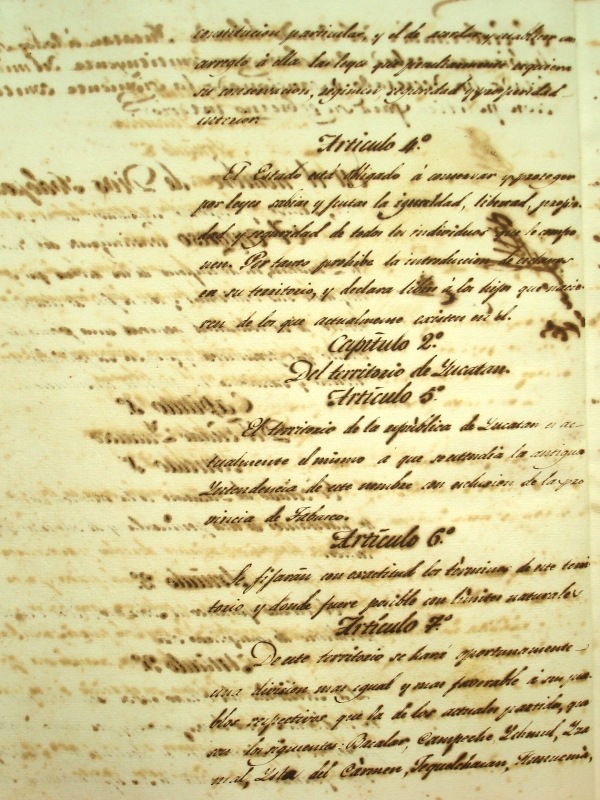 constitucion particular, y el de acordar y establecer con
arreglo á ella las leyes que
su conservacion, régimen seguridad y prosperidad
interior.
Artículo 4.º
El Estado está obligado á conservar y proteger
por leyes sabias y justas la igualdad, libertad, propie-
dad y seguridad de todos los individuos que le compo-
nen. Por tanto prohibe la introduccion de esclavos
en su territorio, y declara libres á los hijos que nacie-
ren de los que actualmente existen en él.
Capítulo 2.º
Del territorio de Yucatan.
Artículo 5.º
El territorio de la república de Yucatan es ac-
tualmente el mismo á que se estendia la antigua
Yntendencia de este nombre con esclusion de la pro-
vincia de Tabasco.
Artículo 6.º
Se fijarán con exactitud los términos de este terri-
torio, y donde fuere posible con límites naturales
Artículo 7.º
De este territorio se hará oportunamente
una division mas igual y mas favorable á sus pue-
blos respectivos que la de los actuales partidos, que
son los siguientes: Bacalar, Campeche, Ychmul, Yza
mal, Ysla del Cármen, Jequelchacan,